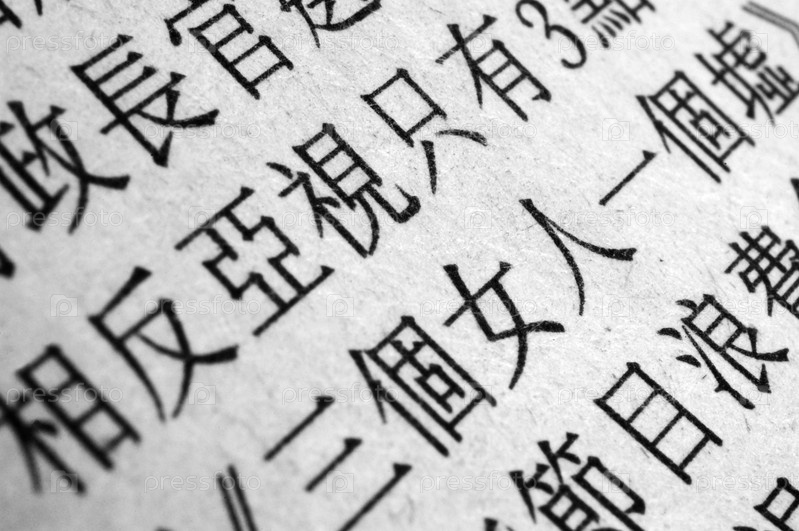 政長官
相反亞視只有3點
三個女人一個墟
節目浪費